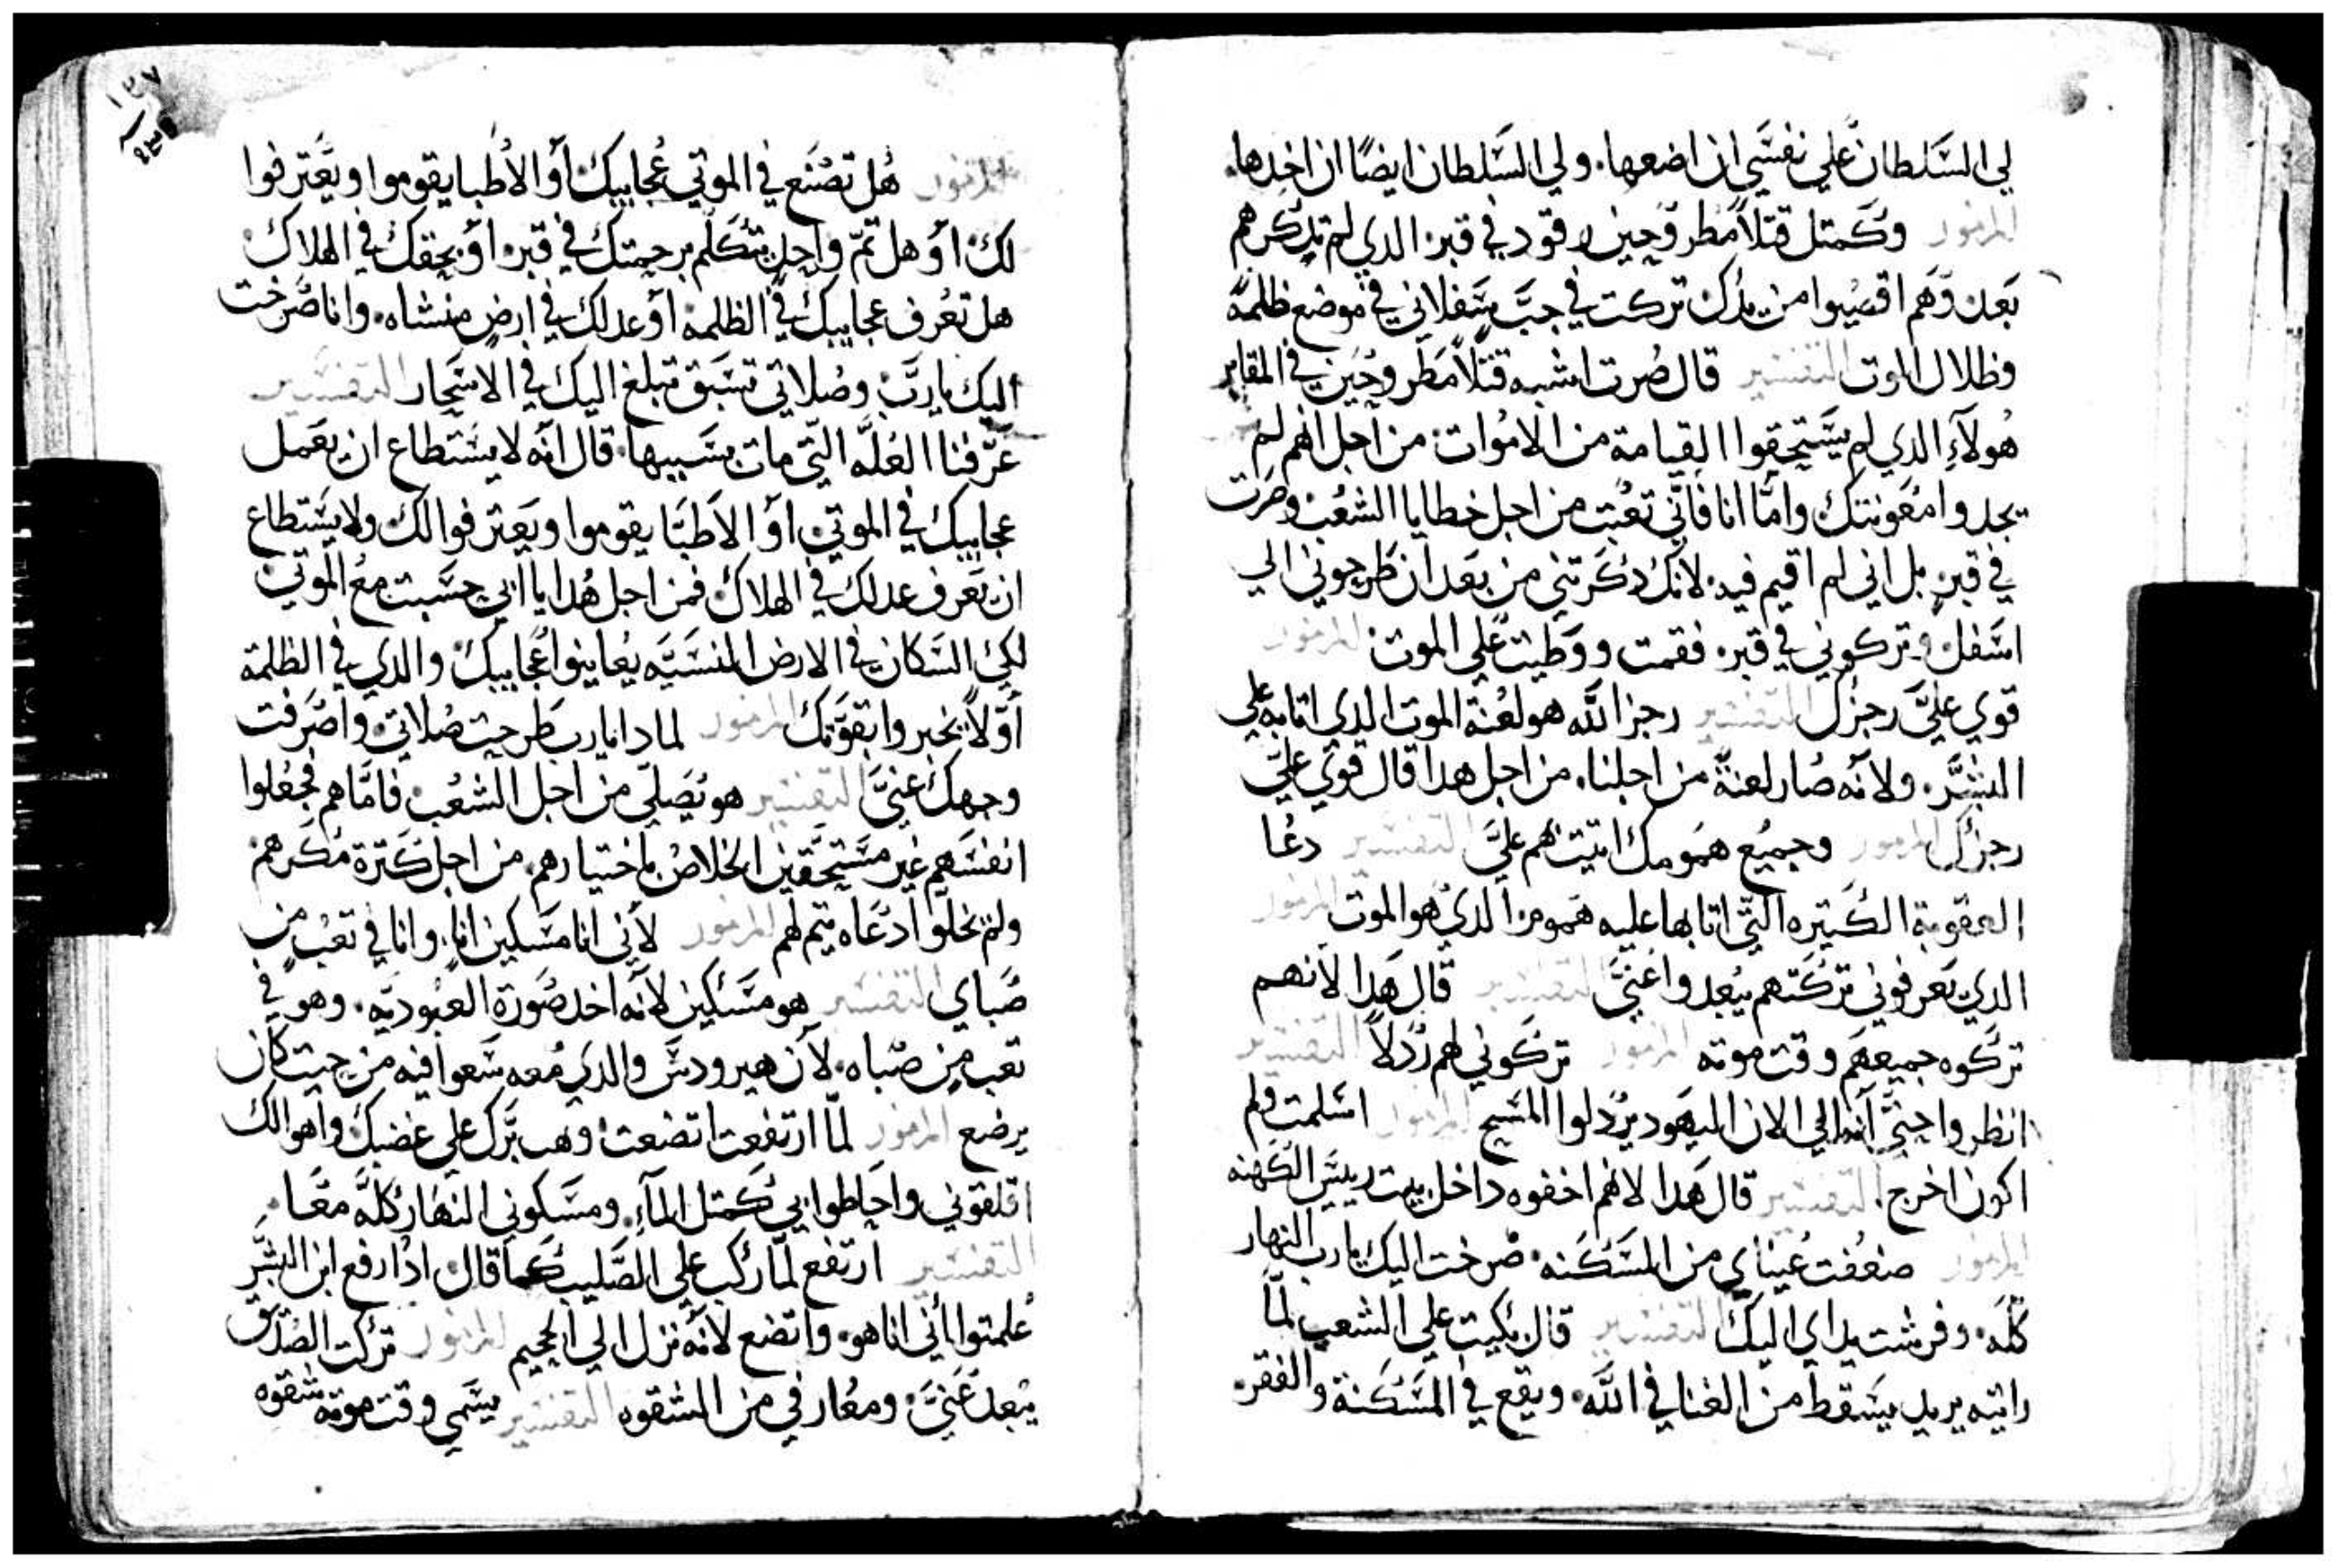 لي السلطان علي نفسي ان اضعها. ولي السلطان ايضًا ان اخدها.
المزمور وكمتل قتلاً مطروحين رقود في قبر. الدي لم تدكرهم
بعد وهم اقصيوا من يدك تركت في جب سفلاني في موضع ظلمة
وظلال الموت التفسير قال صرت اشبه قتلاً مطروحين في المقابر
هولآءِ الدي لم يستحقوا القيامة من الاموات. من اجل انهم لم
يجدوا معونتك وامّا انا فانّي تعبت من اجل خطايا الشعب وصرت
في قبر. بل اني لم اقيم فيه. لانك دكرتني من بعد ان طرحوني الي
اسفل وتركوني في قبر. فقمت ووطيت علي الموت. المزمور
قوي عليَّ رجزك التفسير رجز الله هو لعنة الموت الدي اتا به علي
البشر. ولانه صار لعنةً من اجلنا. من اجل هدا قال قوي عليَّ
رجزك المزمور وجميع همومك اتيتهم عليَّ التفسير دعا
العقوبة الكتيره التّي اتا بها عليه هموم. الدي هو الموت المزمور
الدي يعرفوني تركتهم يبعدوا عنيَّ التفسير قال هدا لانهم
تركوه جميعهم وقت موته المزمور تركوني لهم ردلاً التفسير
انظروا حتيَّ انه الي الان اليهود يردلوا المسيح المزمور اسلمت ولم
اكون اخرج. التفسير قال هدا لانهم اخفوه داخل بيت رييس الكهنه
المزمور ضعفت عيناي من المسكنه. صرخت اليك يارب النهار
كله. وفرشت يداي اليك التفسير قال بكيت علي الشعب لمّا
راتيه يريد يسقط من الغنا في الله. ويقع في المسكنة والفقر.
١٢٧
المزمور هل تصنع في الموتي عجاييبك أو الاطبا يقوموا ويعترفوا
لك. او هل تمّ واحد يتكلم برحمتك في قبر. او بحقك في الهلاك
هل تعرف عجاييبك في الظلمة. او عدلك في ارضٍ منشاه. وانا صرخت
اليك يارب. وصلاتي تسبق تبلغ اليك في الاسحار التفسير
عرّفنا العلّه التّي مات بسببها. قال انه لا يستطاع ان يعمل
عجاييبك في الموتي. او الاطبّا يقوموا ويعترفوا لك. ولا يستطاع
ان يعرف عدلك في الهلاك. فمن اجل هدا يا ابي حسبت مع الموتي.
لكي السكان في الارض المنسيَّه يعاينوا عجاييبك. والدي في الظلمة
أوّلاً يخبروا بقوَّتك المزمور لمادا يارب طرحت صلاتي. واصرفت
وجهك عنيَّ التفسير هو يصلّي من اجل الشعب. فامّاهم فجعلوا
انفسهم غير مستحقين الخلاص باختيارهم. من اجل كترة مكرهم.
ولم يخلوا ادعاه يتم لهم المزمور لأني انا مسكين انا. وانا في تعب من
صباي التفسير هو مسكين لانه اخد صورة العبوديّه. وهو في
تعب من صباه. لان هيرودس والدي معه سعوا فيه من حيت كان
يرضع المزمور لمّا ارتفعت اتضعت. وهب ترك علي غضبك واهوالك
اقلقوني واحاطوا بي كمتل المآءِ. ومسكوني النهار كله معًا.
التفسير ارتفع لمّا ركب علي الصليب كما قال. ادا رفع ابن البشر
علمتوا اني انا هو. واتضع لانه نزل الي الجحيم المزمور تركت الصديق
يبعد عنيَّ. ومعارفي من الشقوه التفسير يسمي وقت موته شقوه